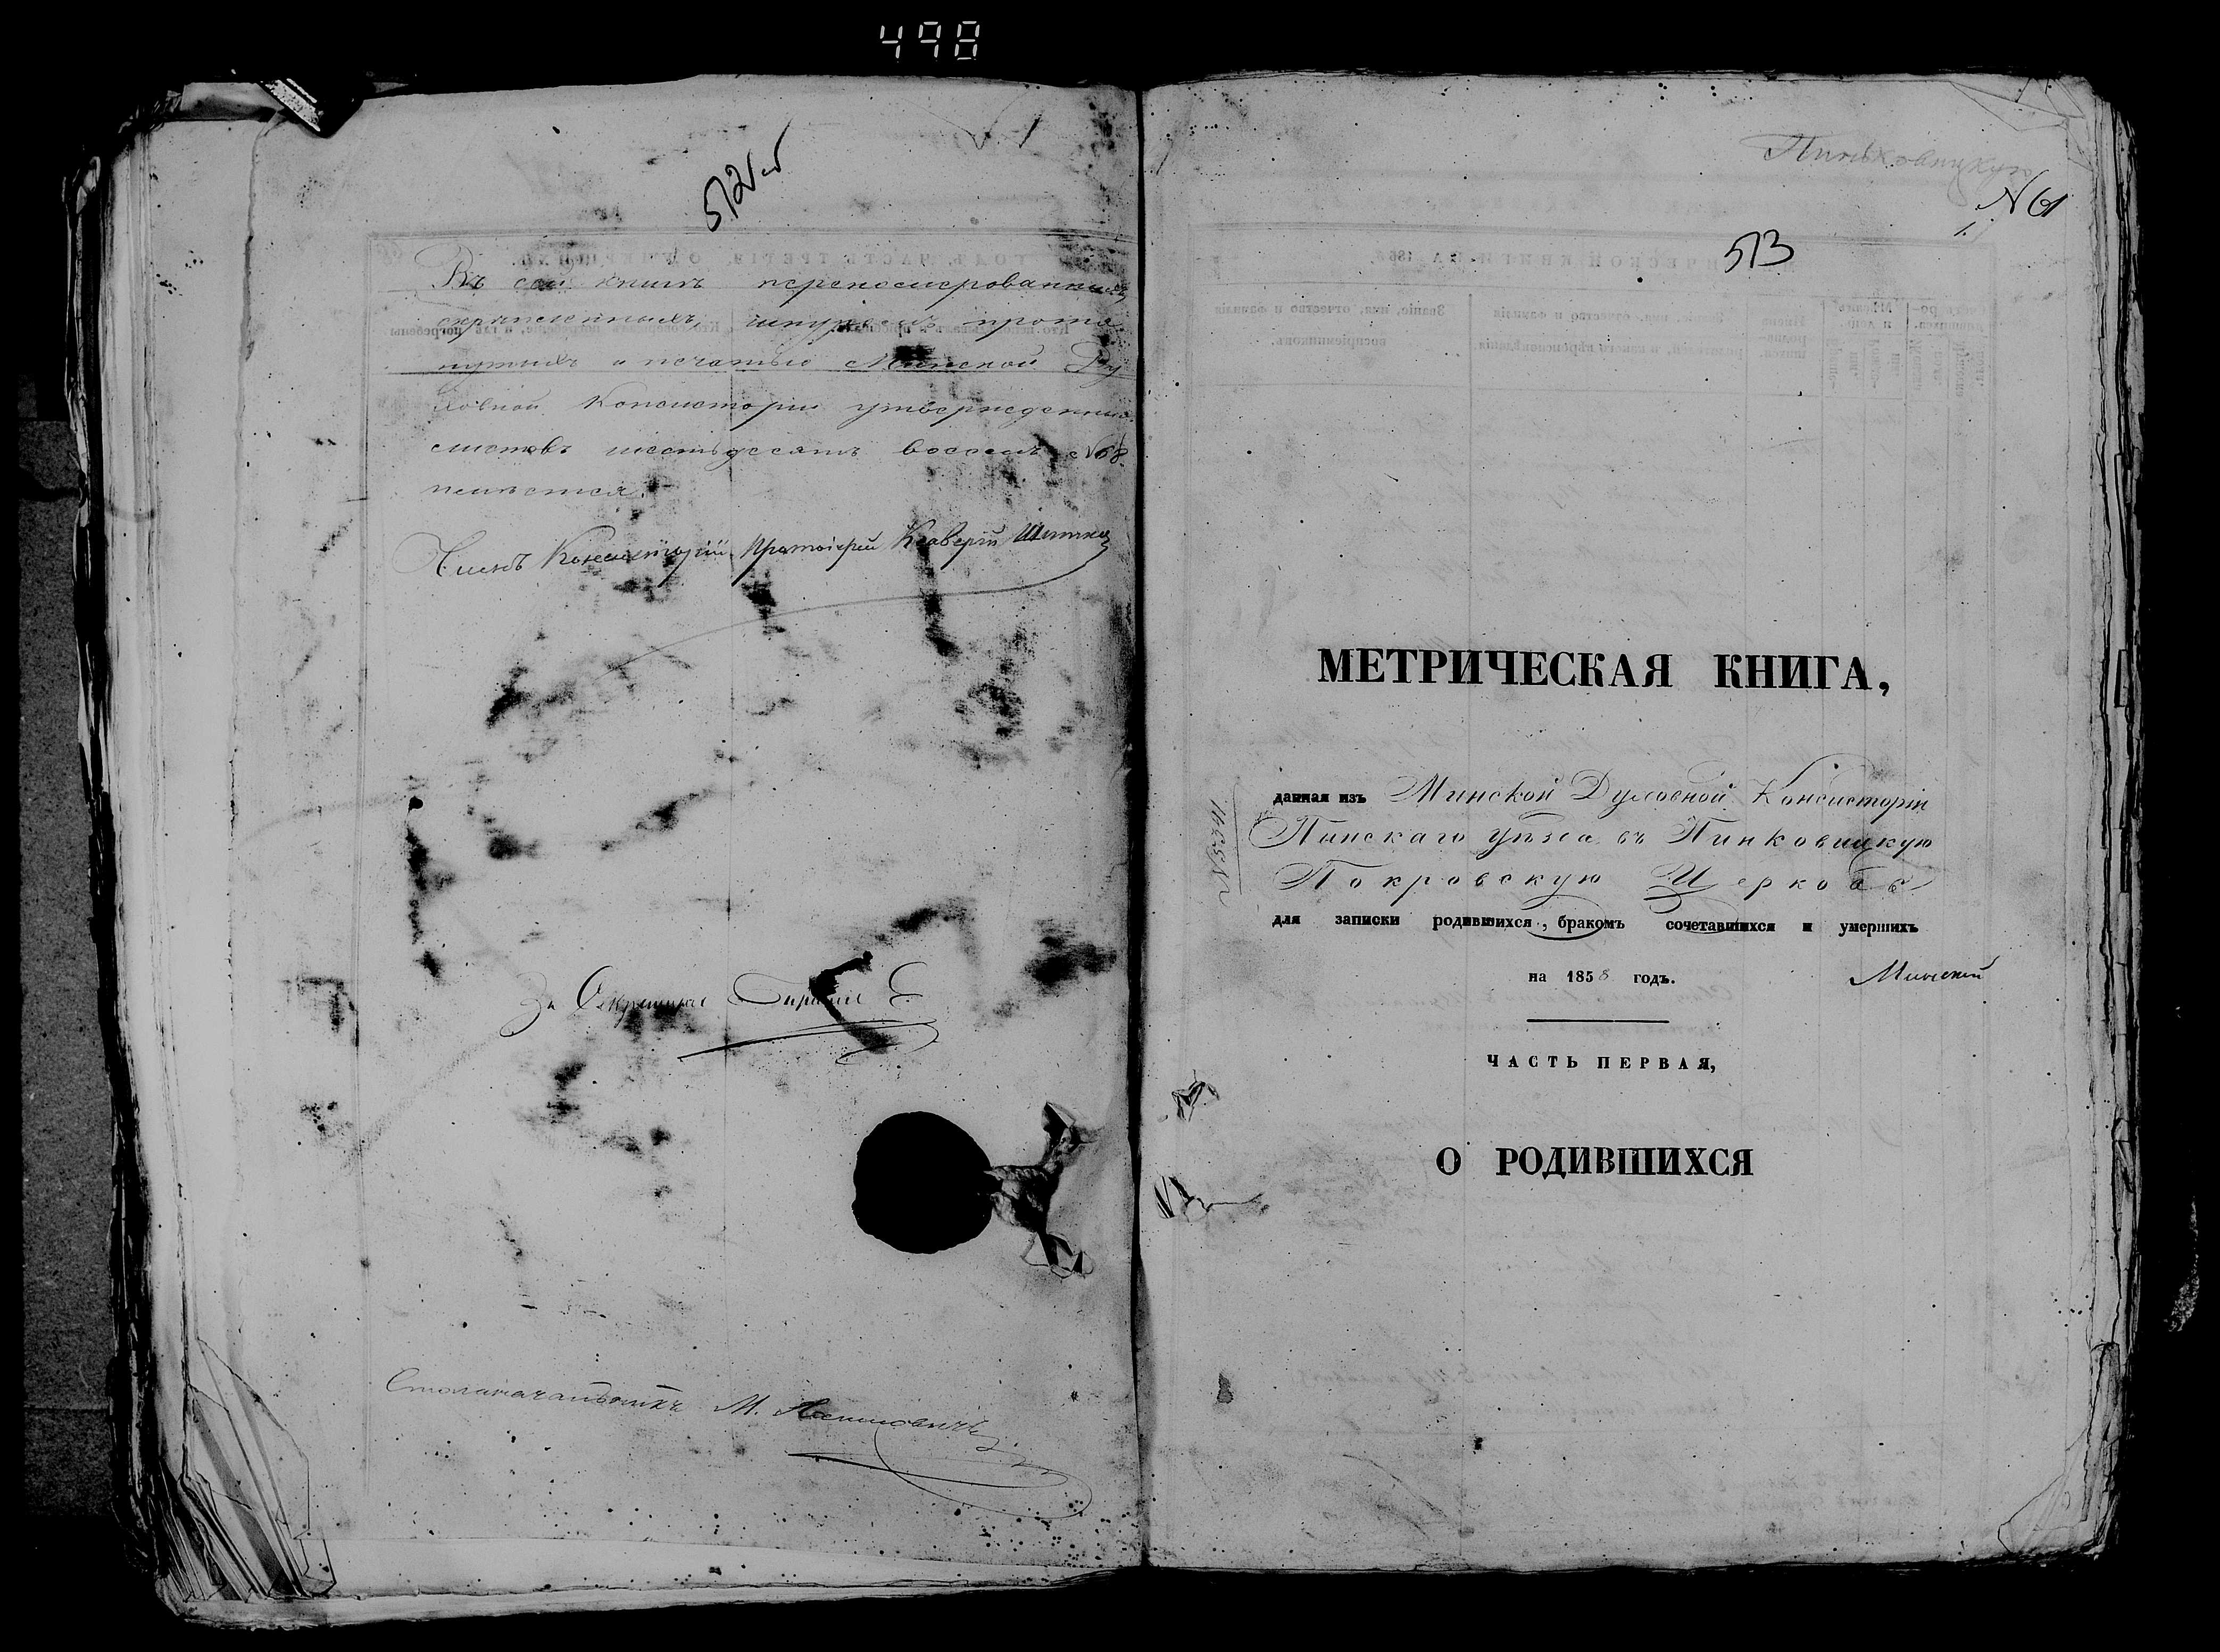 498
1
512 об
Въ сей книгѣ перенумерованныхъ
скрѣпленныхъ, шнуромъ протя
нутыхъ и печатью Минской Ду
ховной Консисторіи утвержденныхъ
листовъ шестьдесятъ восемь № 68.
Членъ Консисторіи Протоіерей Ксаверій
За Секретаря
Столоначальникъ М.
Пиньковицкую
N 61
1.
513
МЕТРИЧЕСКАЯ КНИГА,
N 5341
данная изъ Минской Духовной Консисторіи
Пинскаго уѣзда въ Пинковицкую
Покровскую Церковь
для записки родившихся, бракомъ сочетавшихся и умершихъ
на 1858 годъ. Минской
ЧАСТЬ ПЕРВАЯ,
О РОДИВШИХСЯ